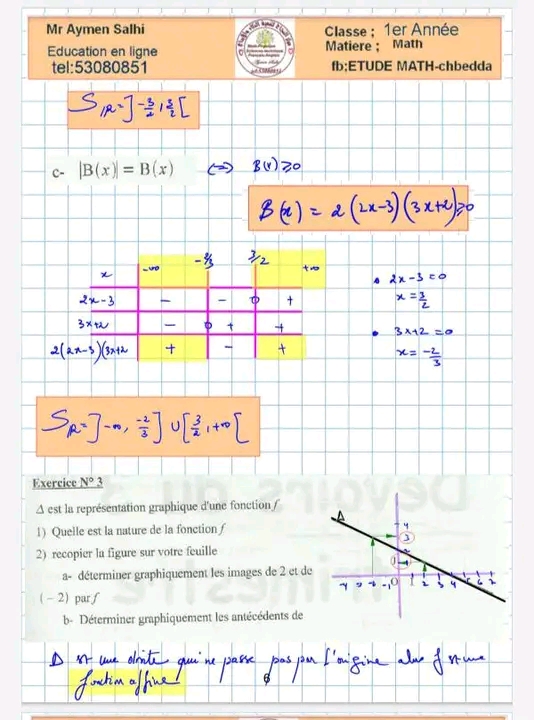 Mr Aymen Salhi
Education en ligne
tel:53080851
Classe ; 1er Année
Matiere ; Math
fb;ETUDE MATH-chbedda
S_IR = ]-3/2, 3/2[
c- |B(x)| = B(x) <=> B(x) ≥ 0
B(x) = 2(2x-3)(3x+2) ≥ 0
x -∞ -2/3 3/2 +∞
2x-3 - - 0 +
3x+2 - 0 + +
2(2x-3)(3x+2 + - +
• 2x-3=0
x = 3/2
• 3x+2=0
x = -2/3
S_IR = ]-∞, -2/3] ∪ [3/2, +∞[
Exercice N° 3
Δ est la représentation graphique d'une fonction f
1) Quelle est la nature de la fonction f
2) recopier la figure sur votre feuille
a- déterminer graphiquement les images de 2 et de
(-2) par f
b- Déterminer graphiquement les antécédents de
Δ
4
3
2
1
-1 0 1 2 3 4 6 7
Δ est une droite qui ne passe pas par l'origine alors f est une
fonction affine